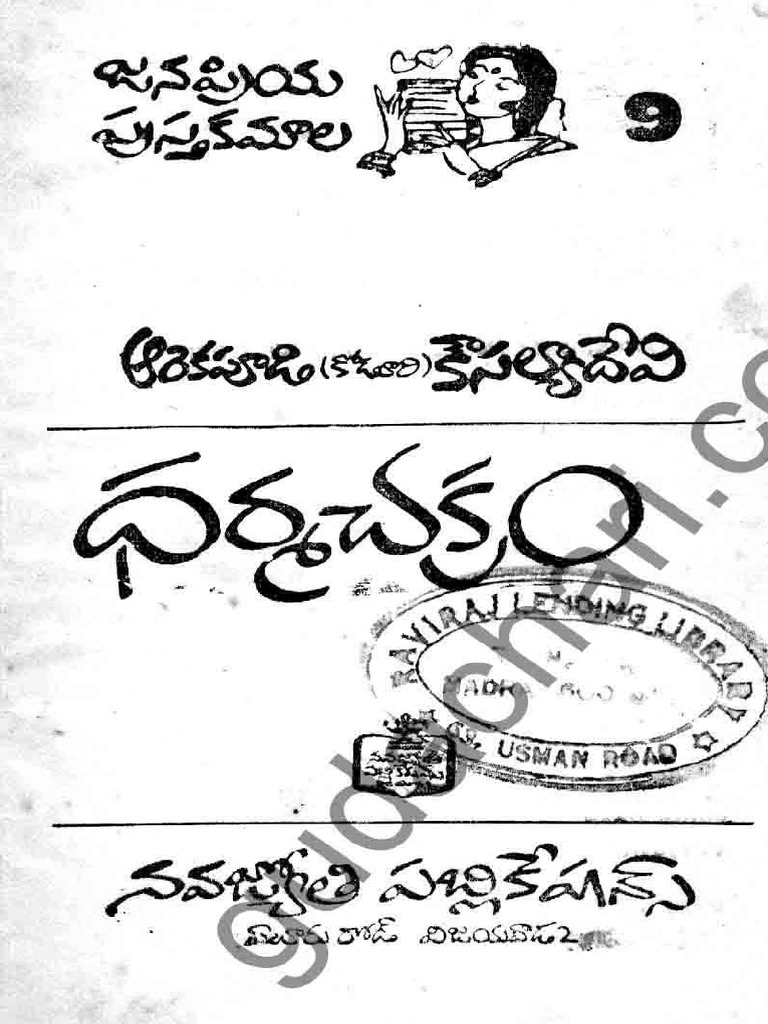 జనప్రియ
పుస్తకమాల
9
ఆరెకపూడి (కోడూరి) కౌసల్యాదేవి
ధర్మచక్రం
RAVIRAJ LENDING LIBRARY
USMAN ROAD
నవజ్యోతి పబ్లికేషన్స్
రోడ్ విజయవాడ 2
gudachari.co